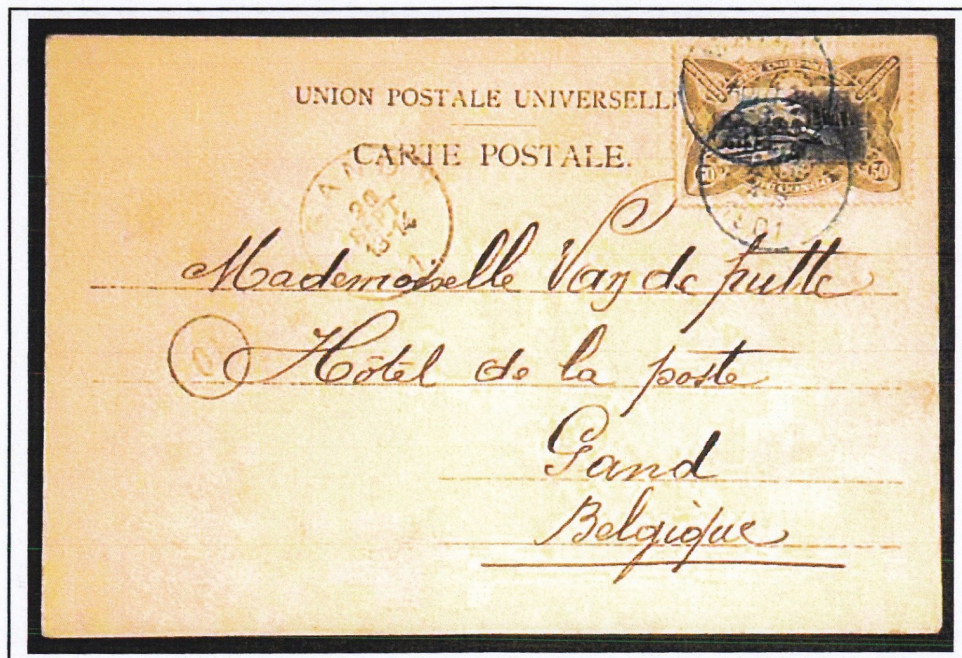 UNION POSTALE UNIVERSELL
CARTE POSTALE.
GAND
28
SEPT
13-14
Mademoiselle Van de putte
Hôtel de la poste
Gand
Belgique
50
1901